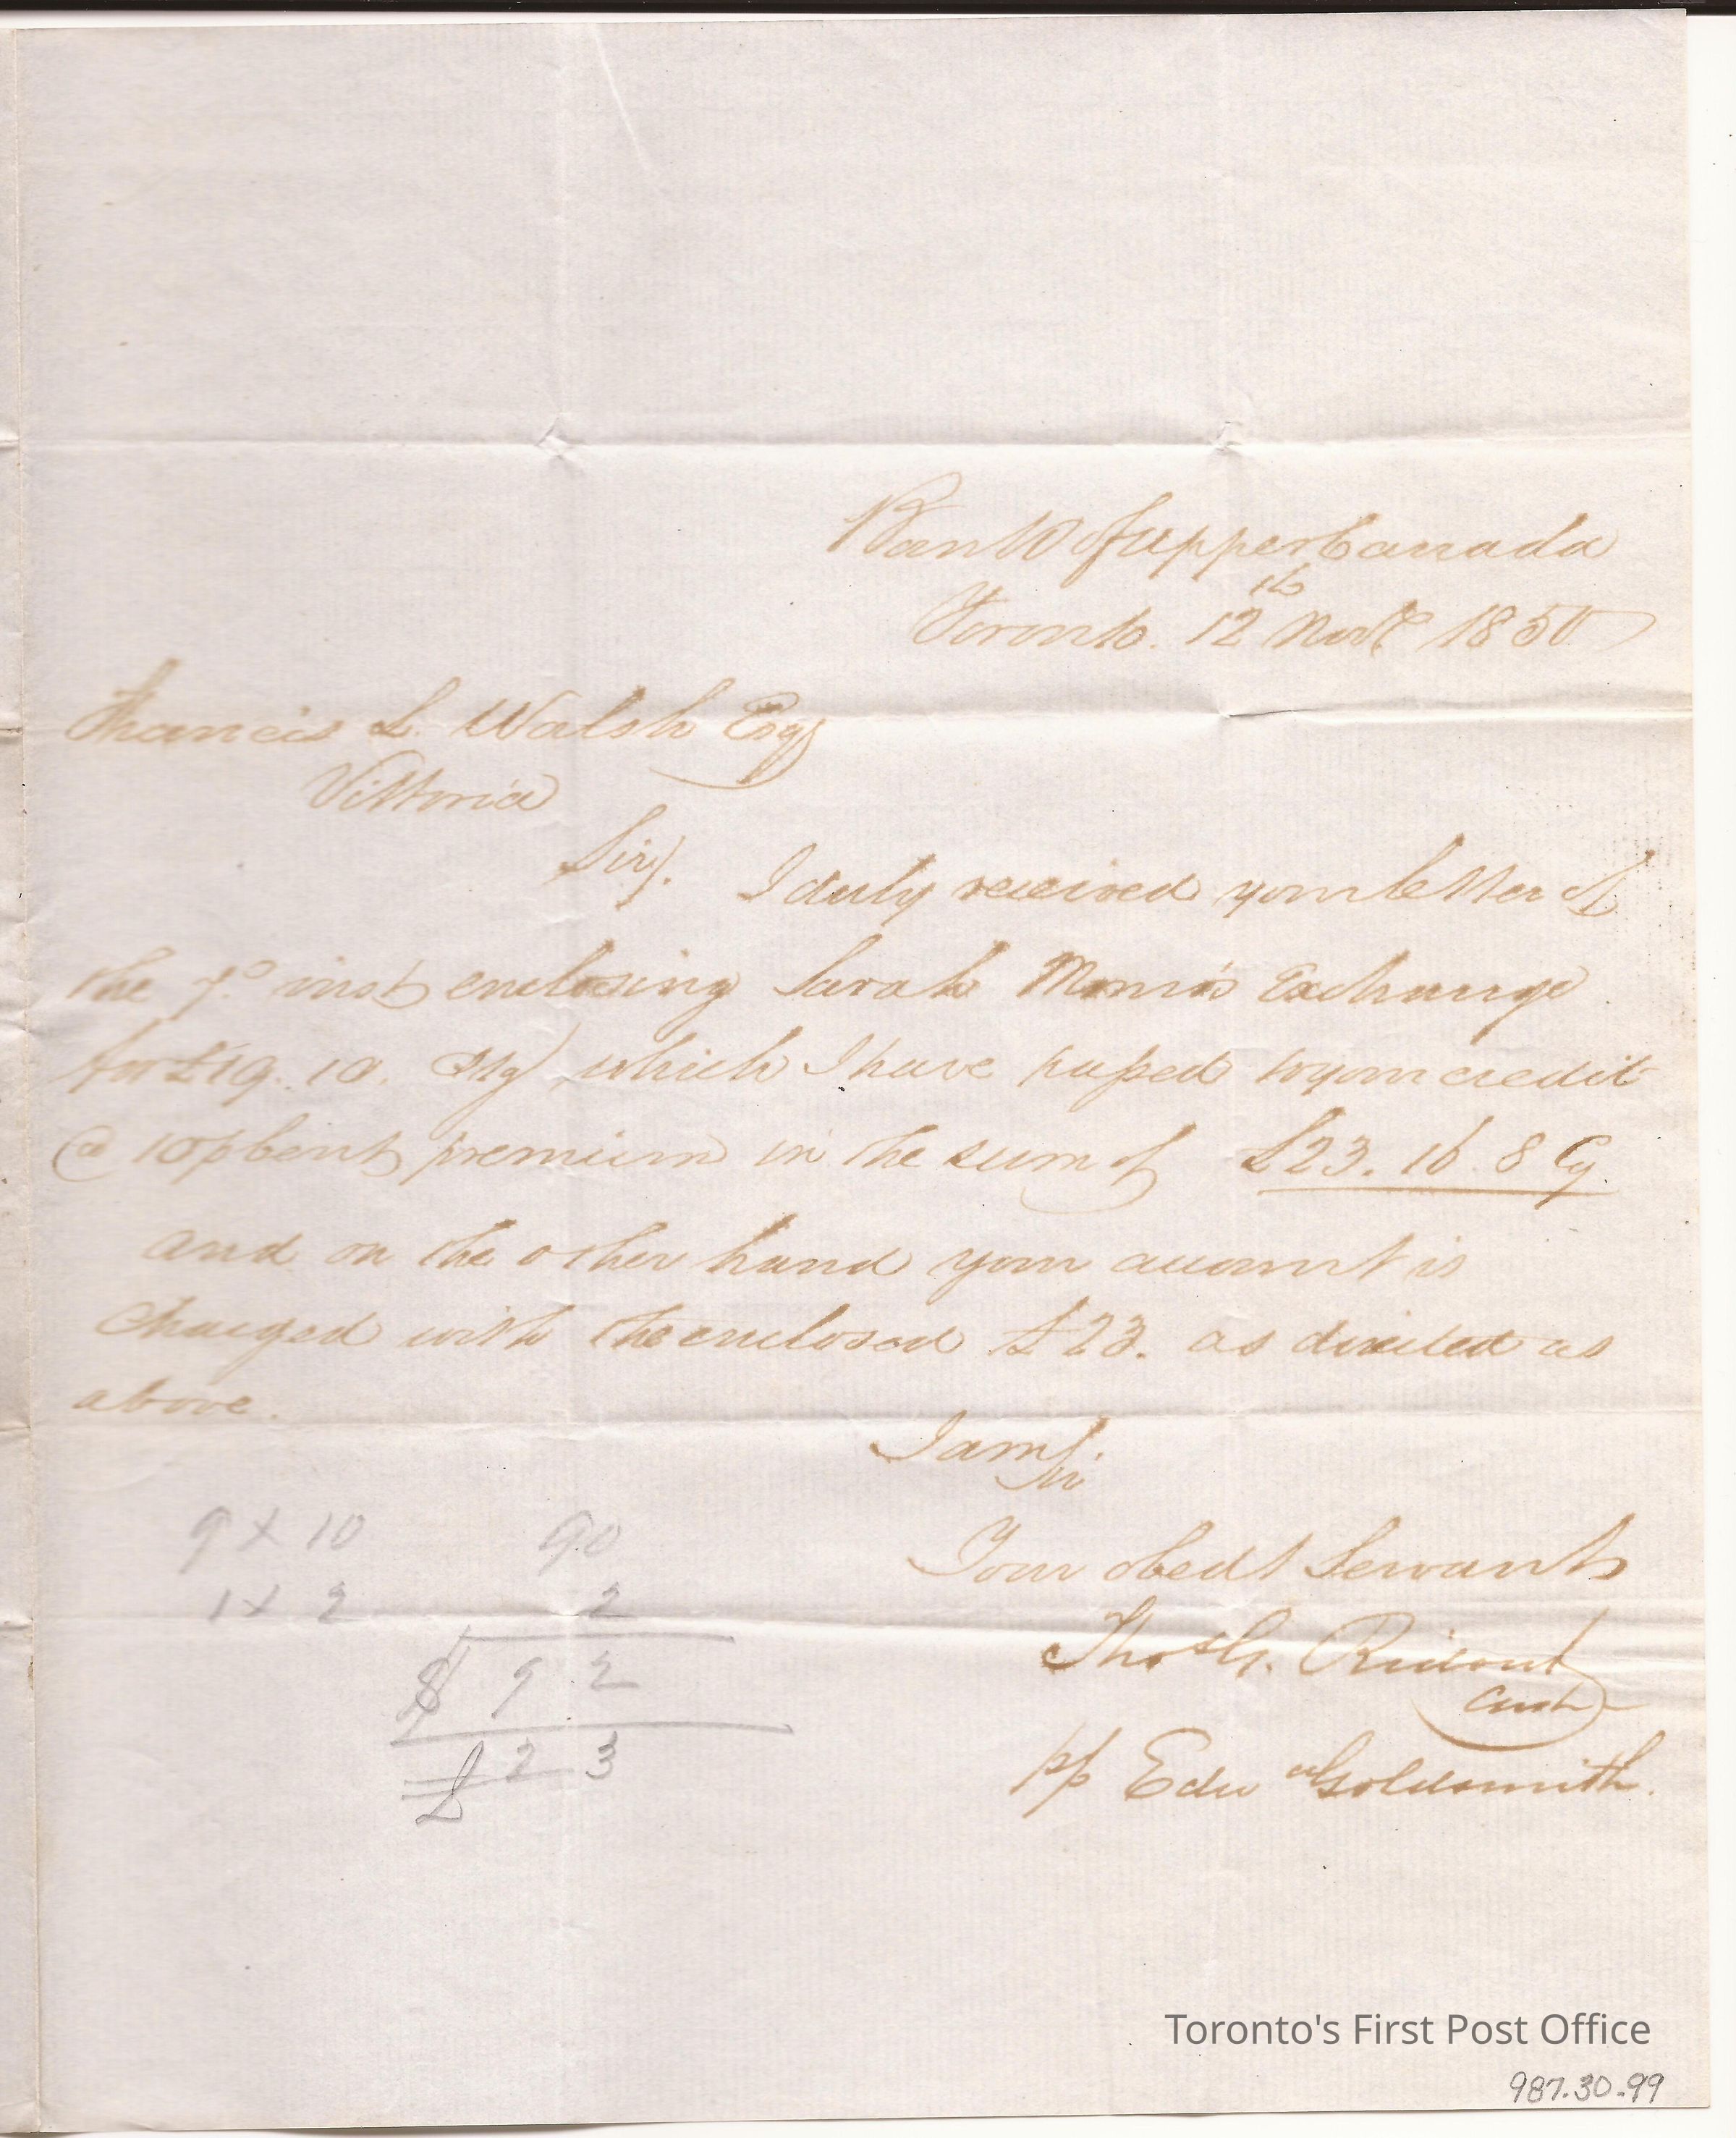 Bank of Upper Canada
Toronto. 12th Novr 1850
Francis L. Walsh Esq
Vittoria
Sir/. I duly received your letter of
the 7o inst enclosing Sarah Exchange
for £19. 10. Stg which I have passed to your credit
@ 10 p Cent premium in the sum of £23. 16. 8 Cy.
and on the other hand your account is
Charged with the enclosed £23. as directed as
above.
I am
Sir
Your obedt Servants
Thos G. Ridout
Cash
pp Edwd Goldsmith.
9 x 10 90
1 x 2 2
$ 92
£ 23
Toronto's First Post Office
987.30.99